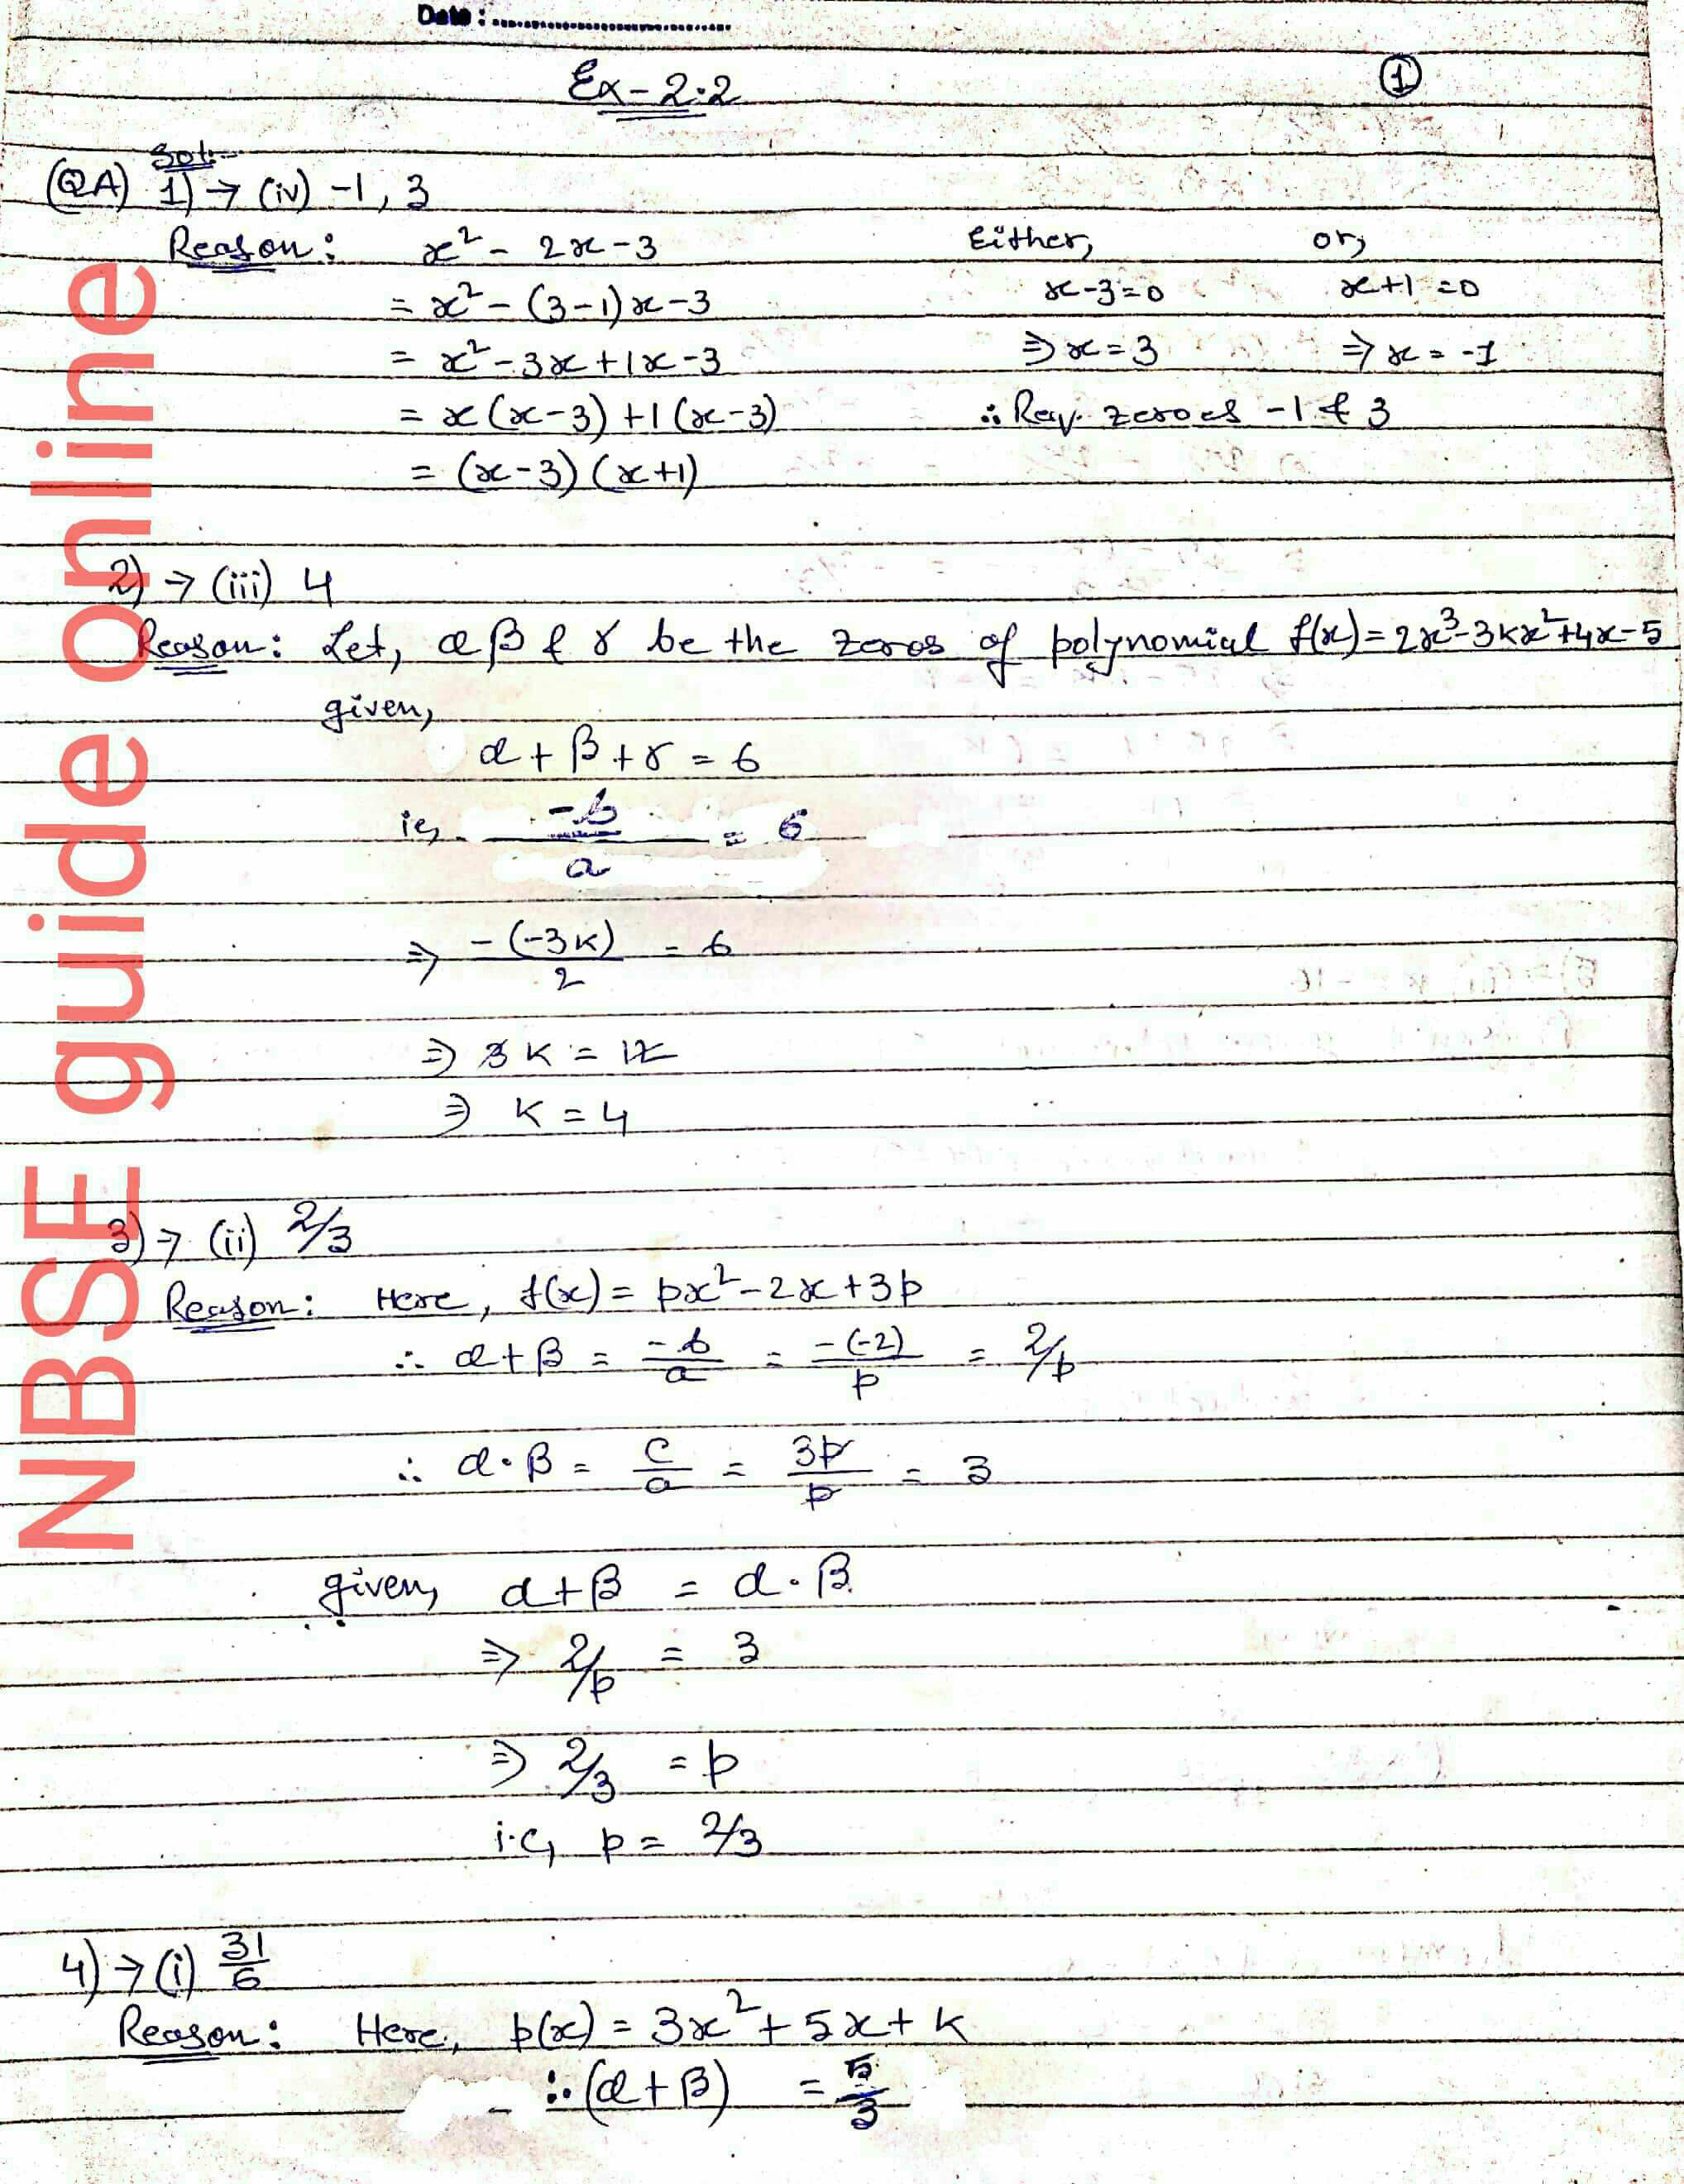 Date : ........................................
Ex - 2.2
①
Sol:-
(QA) 1) → (iv) -1, 3
Reason: x² - 2x - 3
= x² - (3-1)x - 3
= x² - 3x + 1x - 3
= x(x-3) + 1(x-3)
= (x-3)(x+1)
Either, or,
x-3=0 x+1=0
⇒ x = 3 ⇒ x = -1
∴ Req. zeroes -1 & 3
2) → (iii) 4
Reason: Let, α β & γ be the zeros of polynomial f(x) = 2x³-3kx²+4x-5
given,
α + β + γ = 6
ie, -b/a = 6
⇒ -(-3k)/2 = 6
⇒ 3k = 12
⇒ k = 4
3) → (ii) 2/3
Reason: Here, f(x) = px² - 2x + 3p
∴ α+β = -b/a = -(-2)/p = 2/p
∴ α·β = c/a = 3p/p = 3
given, α+β = α·β
⇒ 2/p = 3
⇒ 2/3 = p
i.e, p = 2/3
4) → (i) 31/6
Reason: Here, p(x) = 3x² + 5x + k
∴ (α+β) = 5/3
NBSE guide online